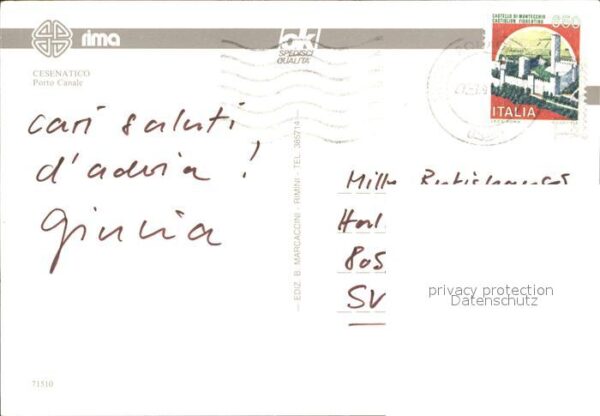 rima
CESENATICO
Porto Canale
ok!
SPEDISCI
QUALITA'
CASTELLO DI MONTECCHIO
CASTIGLION FIORENTINO
650
ITALIA
cari saluti
d'adria!
Giulia
— EDIZ. B. MARCACCINI - RIMINI - TEL. 385714 —
805
SV
privacy protection
Datenschutz
71510